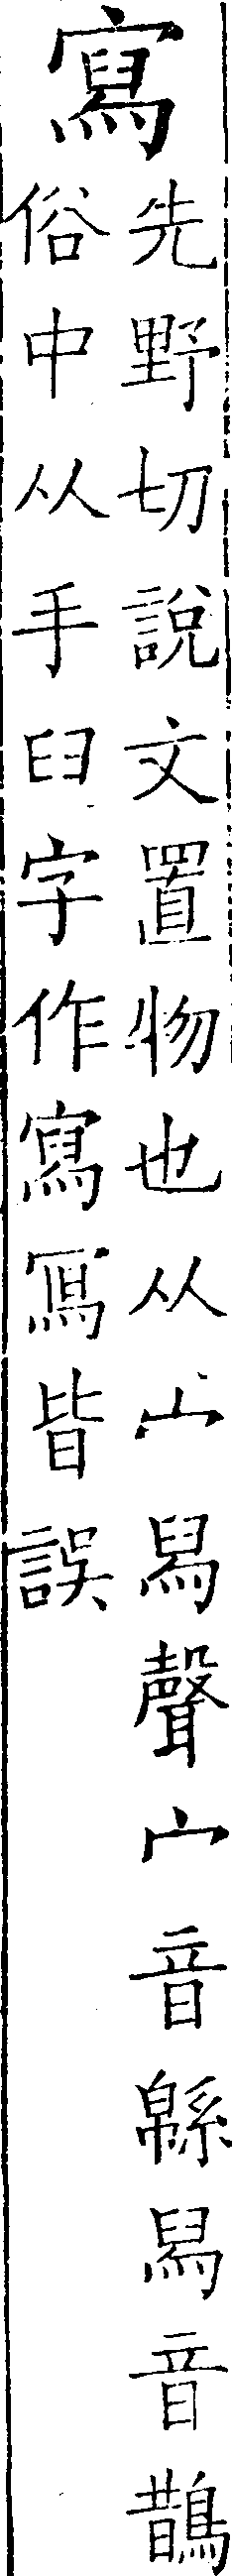 寫
先野切說文置物也从宀舄聲宀音緜舄音鵲
俗中从手臼字作寫冩皆誤